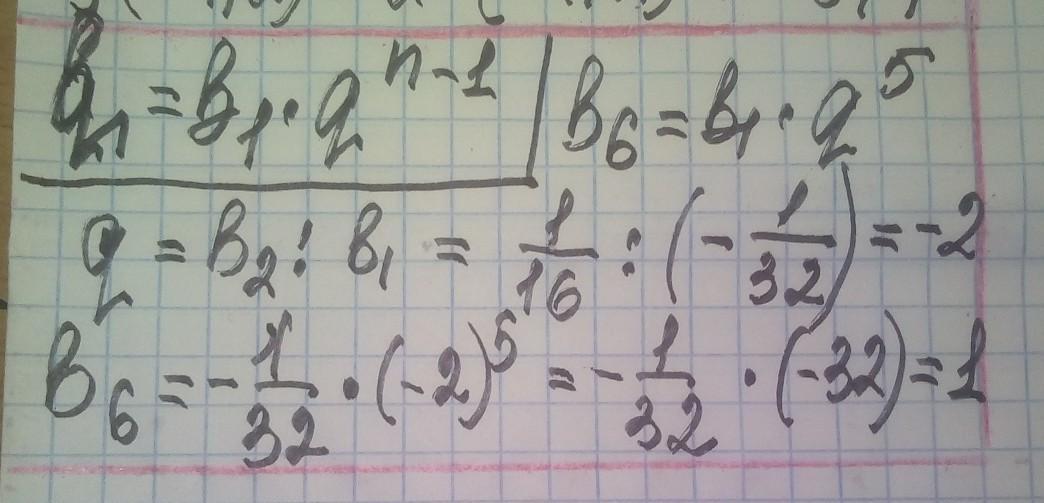 bₙ = b₁ · q^(n-1) | b₆ = b₁ · q⁵
q = b₂ : b₁ = 1/16 : (- 1/32) = -2
b₆ = - 1/32 · (-2)⁵ = - 1/32 · (-32) = 1